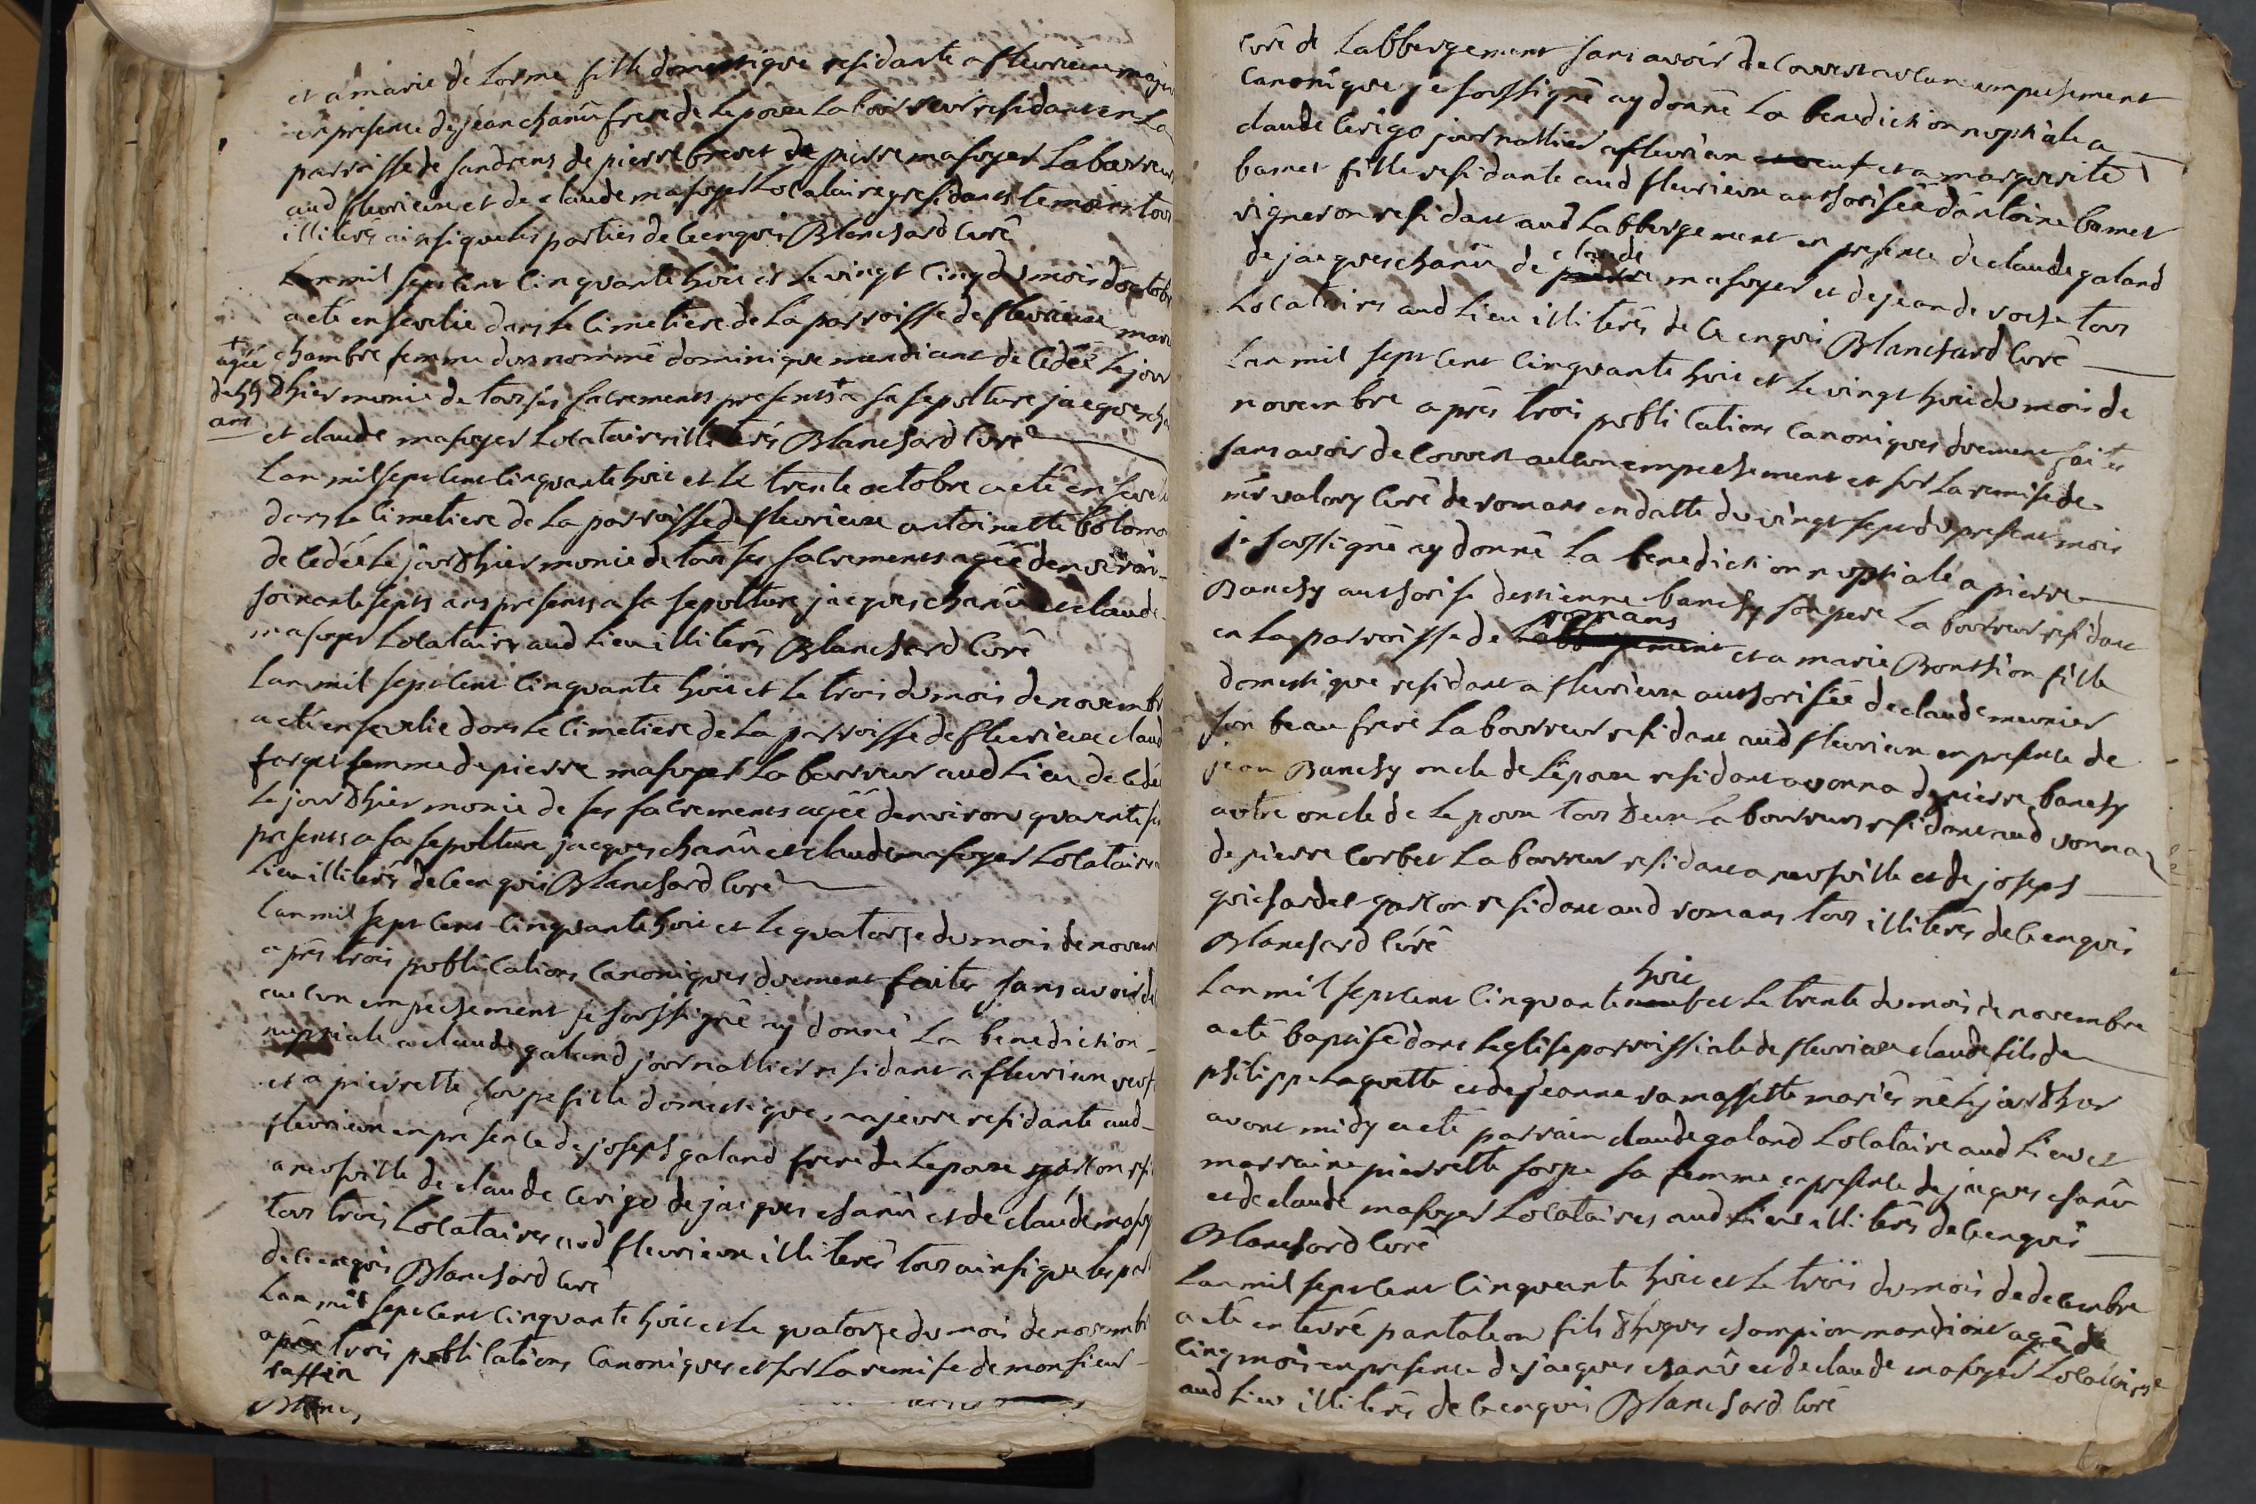 et a marie de Lorme fille domestique residante a fleurieux
en presence de jean chanû frere de Lepoux Laboureur residant en La
parroisse de sandrens de pierre brevet de pierre masuyer Laboureur
aud fleurieux et de claude masuyer Locataire residants temoins tous
illiterés ainsique les parties de ce enquis Blanchard Curé
Lan mil sept cent cinquante huit et Le vingt cinq du mois doctobre
a eté ensevelie dans Le cimetiere de La parroisse de fleurieux
chambre femme dun nommé dominique mendiant decedée Le jour
agée
de
ans
dhier munie de tous ses sacrements presents + a sa sepulture jacques
et claude masuyer Locataires illiterés Blanchard Curé
Lan mil sept cent cinquante huit et Le trente octobre a eté
dans Le cimetiere de La parroisse de fleurieux antoinette
decedée Le jour dhier munie de tous ses sacrements agée denviron
soixante sept ans presents a sa sepulture jacques chanû et claude
masuyer Locataires aud Lieu illiterés Blanchard Curé
Lan mil sept cent cinquante huit et Le trois du mois de novembre
a eté ensevelie dans Le cimetiere de La parroisse de fleurieux
farget femme de pierre masuyer Laboureur aud Lieu
Le jour dhier munie de ses sacrements agée denviron quarante
presents a sa sepulture jacques chanû et claude masuyer Locataires
Lieu illiterés de ce enquis Blanchard Curé
Lan mil sept cent cinquante huit et Le quatorze du mois de
après trois publications canoniques duement faites sans avoir
aucun empechement je soussigné ay donné La benediction
nuptiale a claude galand journallier residant a fleurieux
et a pierrette soupe fille domestique majeure residante aud
fleurieux en presence de joseph galand frere de Lepoux garcon
a neufville de claude Cerigo de jacques chanû et de claude
tous trois Locataires aud fleurieux illiterés tous ainsi que les
de ce enquis Blanchard Curé
Lan mil sept cent cinquante huit et Le quatorze du mois de
après trois publications Canoniques et sur La remise de monsieur
raffin
curé de Labbergement sans avoir decouvert aucun empechement
Canonique je soussigné ay donné La benediction nuptiale a
claude Cerigo journallier a fleurieux et a marguerite
bamet fille residante aud fleurieux authorisée dantoine bamet
vigneron residant aud Labbergement en presence de claude galand
claude
de jacques chanû de masuyer et de jean de roche tous
Locataires aud Lieu illiterés de ce enquis Blanchard Curé
Lan mil sept cent cinquante huit et Le vingt huit du mois de
novembre après trois publications canoniques duement faites
sans avoir decouvert aucun empechement et sur La remise de
mr valory Curé de romans en datte du vingt sept du present mois
je soussigné ay donné La benediction nuptiale a pierre
Banchy authorisé destienne banchy son pere Laboureur residant
romans
en La parroisse de Labbergement et a marie Bonthion fille
domestique residant a fleurieux authorisée de claude meunier
son beau frere Laboureur residant aud fleurieux en presence de
jean Banchy oncle de Lepoux residant a vonna de pierre banchy
autre oncle de Lepoux tous deux Laboureurs residant aud vonna
de pierre Corbet Laboureur residant a neufville et de joseph
guichardet garcon residant aud romans tous illiterés de ce enquis
Blanchard Curé
huit
Lan mil sept cent cinquante neuf et Le trente du mois de novembre
a eté baptisé dans Leglise parroissiale de fleurieux claude fils de
philippe Laquette et de jeanne ramassette mariés né Le jour dhier
avant midy a eté parrain claude galand Locataire aud Lieu et
marraine pierrette soupe sa femme en presence de jacques chanû
et de claude masuyer Locataires aud Lieu illiterés de ce enquis
Blanchard Curé
Lan mil sept cent cinquante huit et Le trois du mois de decembre
a eté enterré pantaleon fils dhugues champion mandiant agé de
cinq mois en presence de jacques chanû et de claude masuyer Locataires
aud Lieu illiterés de ce enquis Blanchard Curé